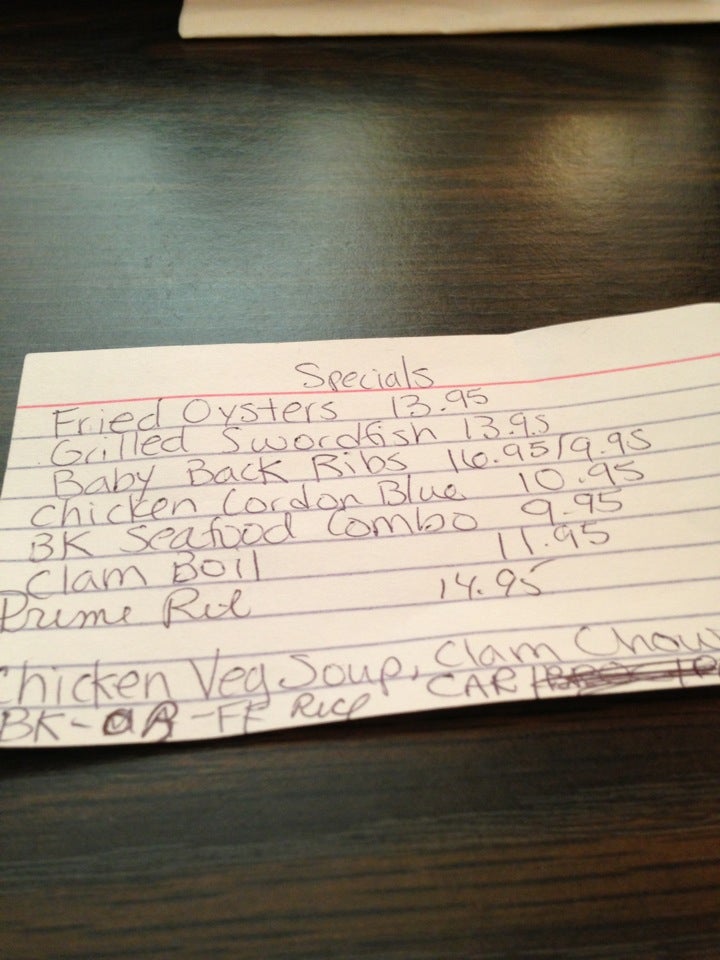 Specials
Fried Oysters 13.95
Grilled Swordfish 13.95
Baby Back Ribs 16.95/9.95
Chicken Cordon Blue 10.95
BK Seafood Combo 9.95
Clam Boil 11.95
Prime Rib 14.95
Chicken Veg Soup, Clam Chow
BK - - FF Rice CAR